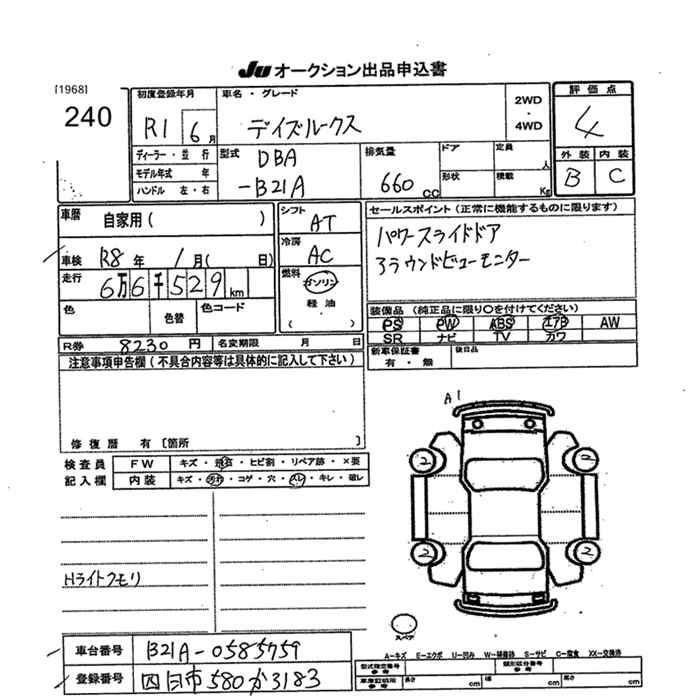 JU オークション出品申込書
[1968]
240
初度登録年月
R1 6月
車名・グレード
デイズルークス
2WD
・
4WD
評価点
4
外装 内装
B C
ディーラー・並行
モデル年式 年
ハンドル 左・右
型式
DBA
-B21A
排気量
660 CC
ドア
形状
定員
人
積載
Kg
車歴
自家用( )
車検 R8年 1月( 日)
走行
6万6千529km
色
色替
色コード
R券 8230円
名変期限 月 日
シフト
AT
冷房
AC
燃料
ガソリン
軽油
( )
セールスポイント(正常に機能するものに限ります)
パワースライドドア
アラウンドビューモニター
装備品(純正品に限り○を付けてください)
PS PW ABS エアB AW
SR ナビ TV カワ
新車保証書
有・無
後日品
注意事項申告欄(不具合内容等は具体的に記入して下さい)
修復歴 有[箇所 ]
検査員
記入欄
FW キズ・飛石・ヒビ割・リペア跡・×要
内装 キズ・汚れ・コゲ・穴・スレ・キレ・破レ
Hライトクモリ
A1
2 2
2 2
スペア
A-キズ E-エクボ U-凹み W-補修跡 S-サビ C-腐食 XX-交換済
車台番号 B21A-0585759
登録番号 四日市580か3183
型式指定番号
参考
類別区分番号
参考
車庫証明用
参考
長さ cm 幅 cm 高さ cm